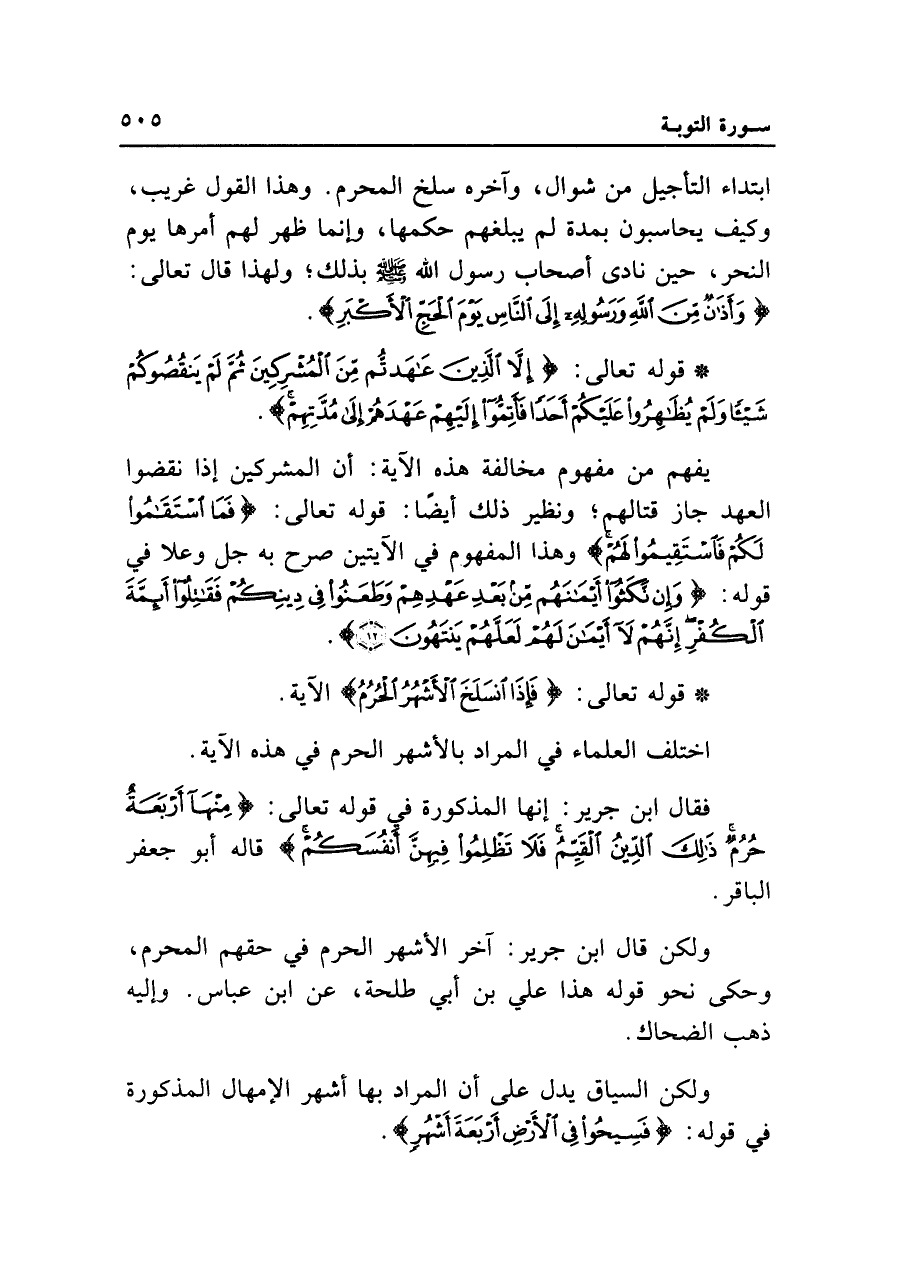 سورة التوبة ٥٠٥
ابتداء التأجيل من شوال، وآخره سلخ المحرم. وهذا القول غريب،
وكيف يحاسبون بمدة لم يبلغهم حكمها، وإنما ظهر لهم أمرها يوم
النحر، حين نادى أصحاب رسول الله ﷺ بذلك؛ ولهذا قال تعالى:
﴿ وَأَذَٰنٌ مِّنَ ٱللَّهِ وَرَسُولِهِۦٓ إِلَى ٱلنَّاسِ يَوْمَ ٱلْحَجِّ ٱلْأَكْبَرِ ﴾.
* قوله تعالى: ﴿ إِلَّا ٱلَّذِينَ عَٰهَدتُّم مِّنَ ٱلْمُشْرِكِينَ ثُمَّ لَمْ يَنقُصُوكُمْ
شَيْـًٔا وَلَمْ يُظَٰهِرُوا۟ عَلَيْكُمْ أَحَدًا فَأَتِمُّوٓا۟ إِلَيْهِمْ عَهْدَهُمْ إِلَىٰ مُدَّتِهِمْ ۚ﴾.
يفهم من مفهوم مخالفة هذه الآية: أن المشركين إذا نقضوا
العهد جاز قتالهم؛ ونظير ذلك أيضًا: قوله تعالى: ﴿ فَمَا ٱسْتَقَٰمُوا۟
لَكُمْ فَٱسْتَقِيمُوا۟ لَهُمْ ۚ﴾ وهذا المفهوم في الآيتين صرح به جل وعلا في
قوله: ﴿ وَإِن نَّكَثُوٓا۟ أَيْمَٰنَهُم مِّنۢ بَعْدِ عَهْدِهِمْ وَطَعَنُوا۟ فِى دِينِكُمْ فَقَٰتِلُوٓا۟ أَئِمَّةَ
ٱلْكُفْرِ ۙ إِنَّهُمْ لَآ أَيْمَٰنَ لَهُمْ لَعَلَّهُمْ يَنتَهُونَ ١٢﴾.
* قوله تعالى: ﴿ فَإِذَا ٱنسَلَخَ ٱلْأَشْهُرُ ٱلْحُرُمُ﴾ الآية.
اختلف العلماء في المراد بالأشهر الحرم في هذه الآية.
فقال ابن جرير: إنها المذكورة في قوله تعالى: ﴿ مِنْهَآ أَرْبَعَةٌ
حُرُمٌ ۚ ذَٰلِكَ ٱلدِّينُ ٱلْقَيِّمُ ۚ فَلَا تَظْلِمُوا۟ فِيهِنَّ أَنفُسَكُمْ ۚ﴾ قاله أبو جعفر
الباقر.
ولكن قال ابن جرير: آخر الأشهر الحرم في حقهم المحرم،
وحكى نحو قوله هذا علي بن أبي طلحة، عن ابن عباس. وإليه
ذهب الضحاك.
ولكن السياق يدل على أن المراد بها أشهر الإمهال المذكورة
في قوله: ﴿ فَسِيحُوا۟ فِى ٱلْأَرْضِ أَرْبَعَةَ أَشْهُرٍ﴾.